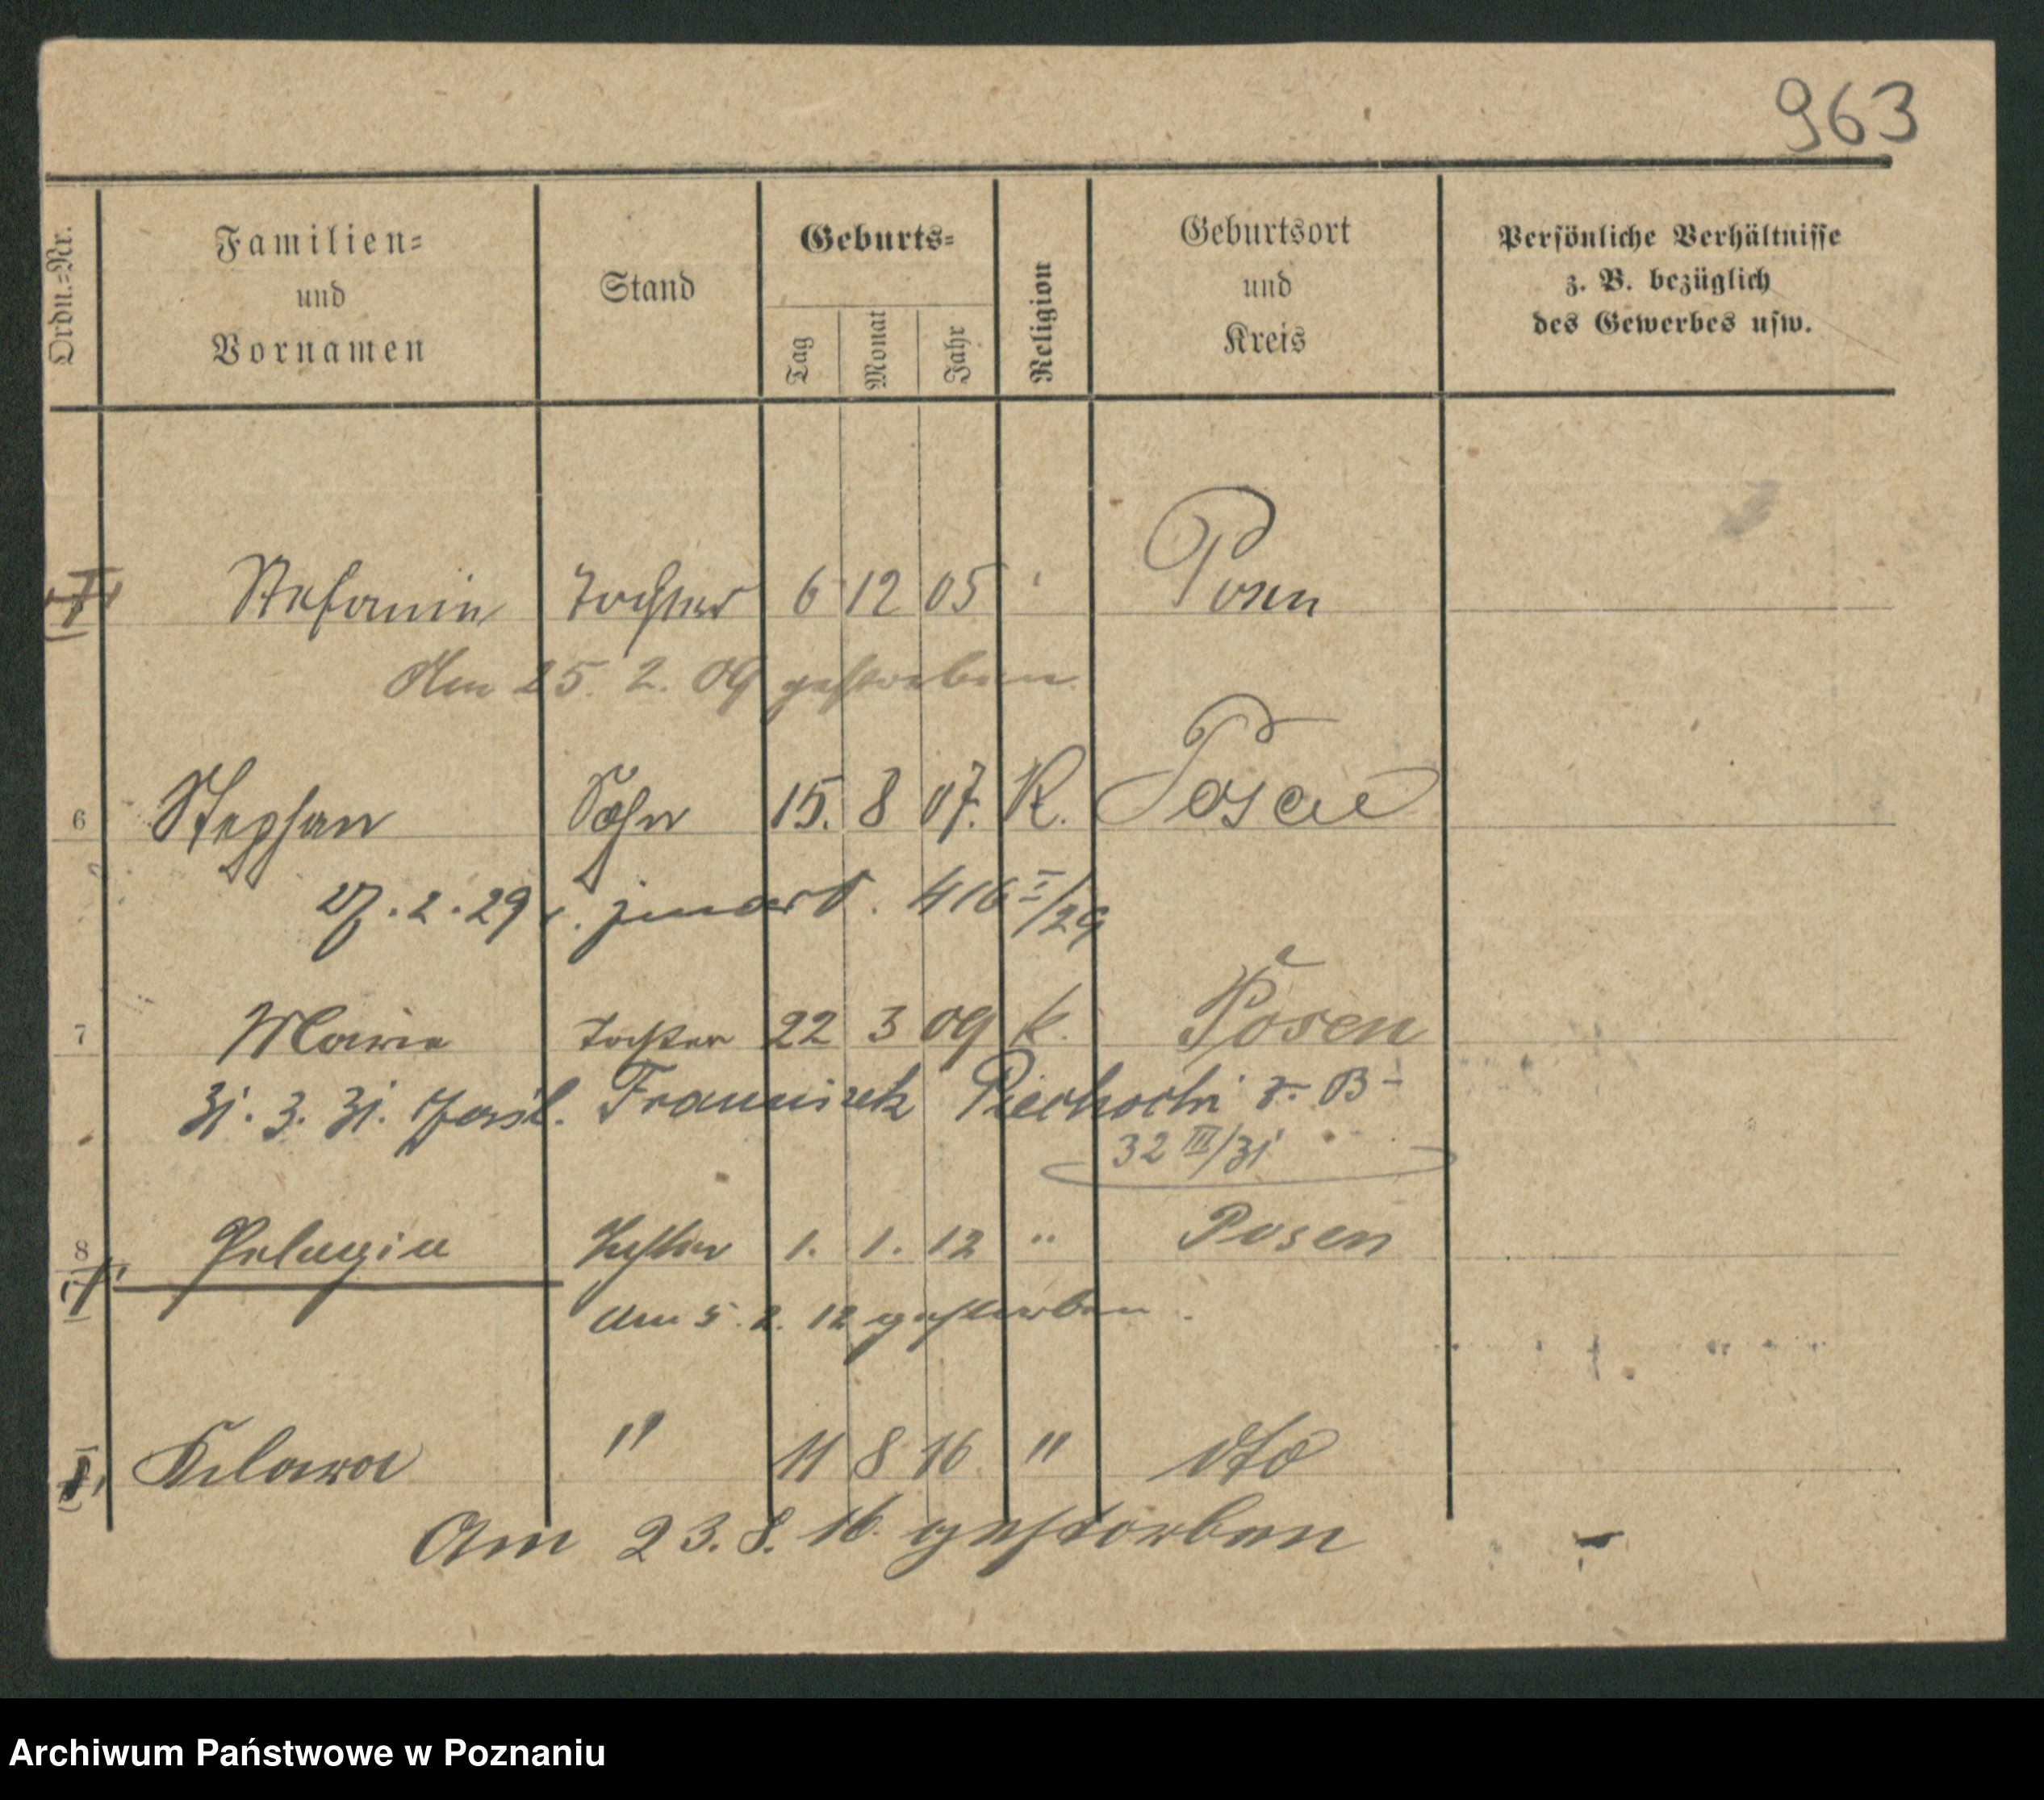 963
Ordn.-Nr.
Familien-
und
Vornamen
Stand
Geburts-
Tag
Monat
Jahr
Religion
Geburtsort
und
Kreis
Persönliche Verhältnisse
z. B. bezüglich
des Gewerbes usw.
Stefanie Tochter 6 12 05 Posen
Am 25. 2. 09 gestorben
6 Stephan Sohn 15. 8 07. K. Posen
27. 2. 29 416 I/29
7 Marie Tochter 22 3 09 k. Posen
31. 3. 31. Franciszek Piechocki
32 III/31
8 Pelagia Tochter 1. 1. 12 " Posen
Am 5. 2. 12 gestorben.
" 11 8 16 " dto
Am 23. 8. 16. gestorben
Archiwum Państwowe w Poznaniu